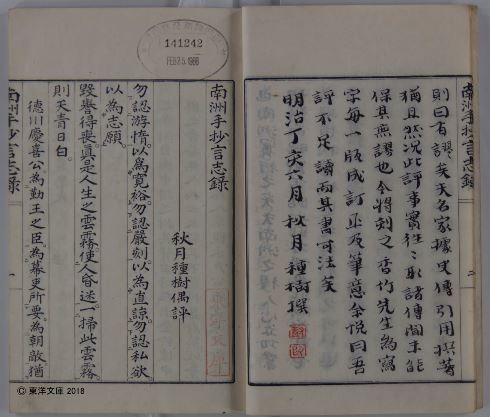 南洲手抄言志錄
則曰有謬矣夫名家據史傳引用撰著
猶且然況此評事實往〻取諸傳聞未能
保其無謬也今將刻之香竹先生為寫
字每一版成訂正及筆意余悅曰吾
評不足讀而其書可法矣
明治丁亥六月 秋月種樹撰
南洲手抄言志錄
秋月種樹偶評
勿認游惰以為寬裕勿認嚴刻以為直諒勿認私欲
以為志願
毀譽得喪真是人生之雲霧使人昏迷一掃此雲霧
則天青日白
德川慶喜公為勤王之臣為幕吏所要為朝敵猶
南洲手抄言志錄
一
141242
FEB 25 1966
© 東洋文庫 2018